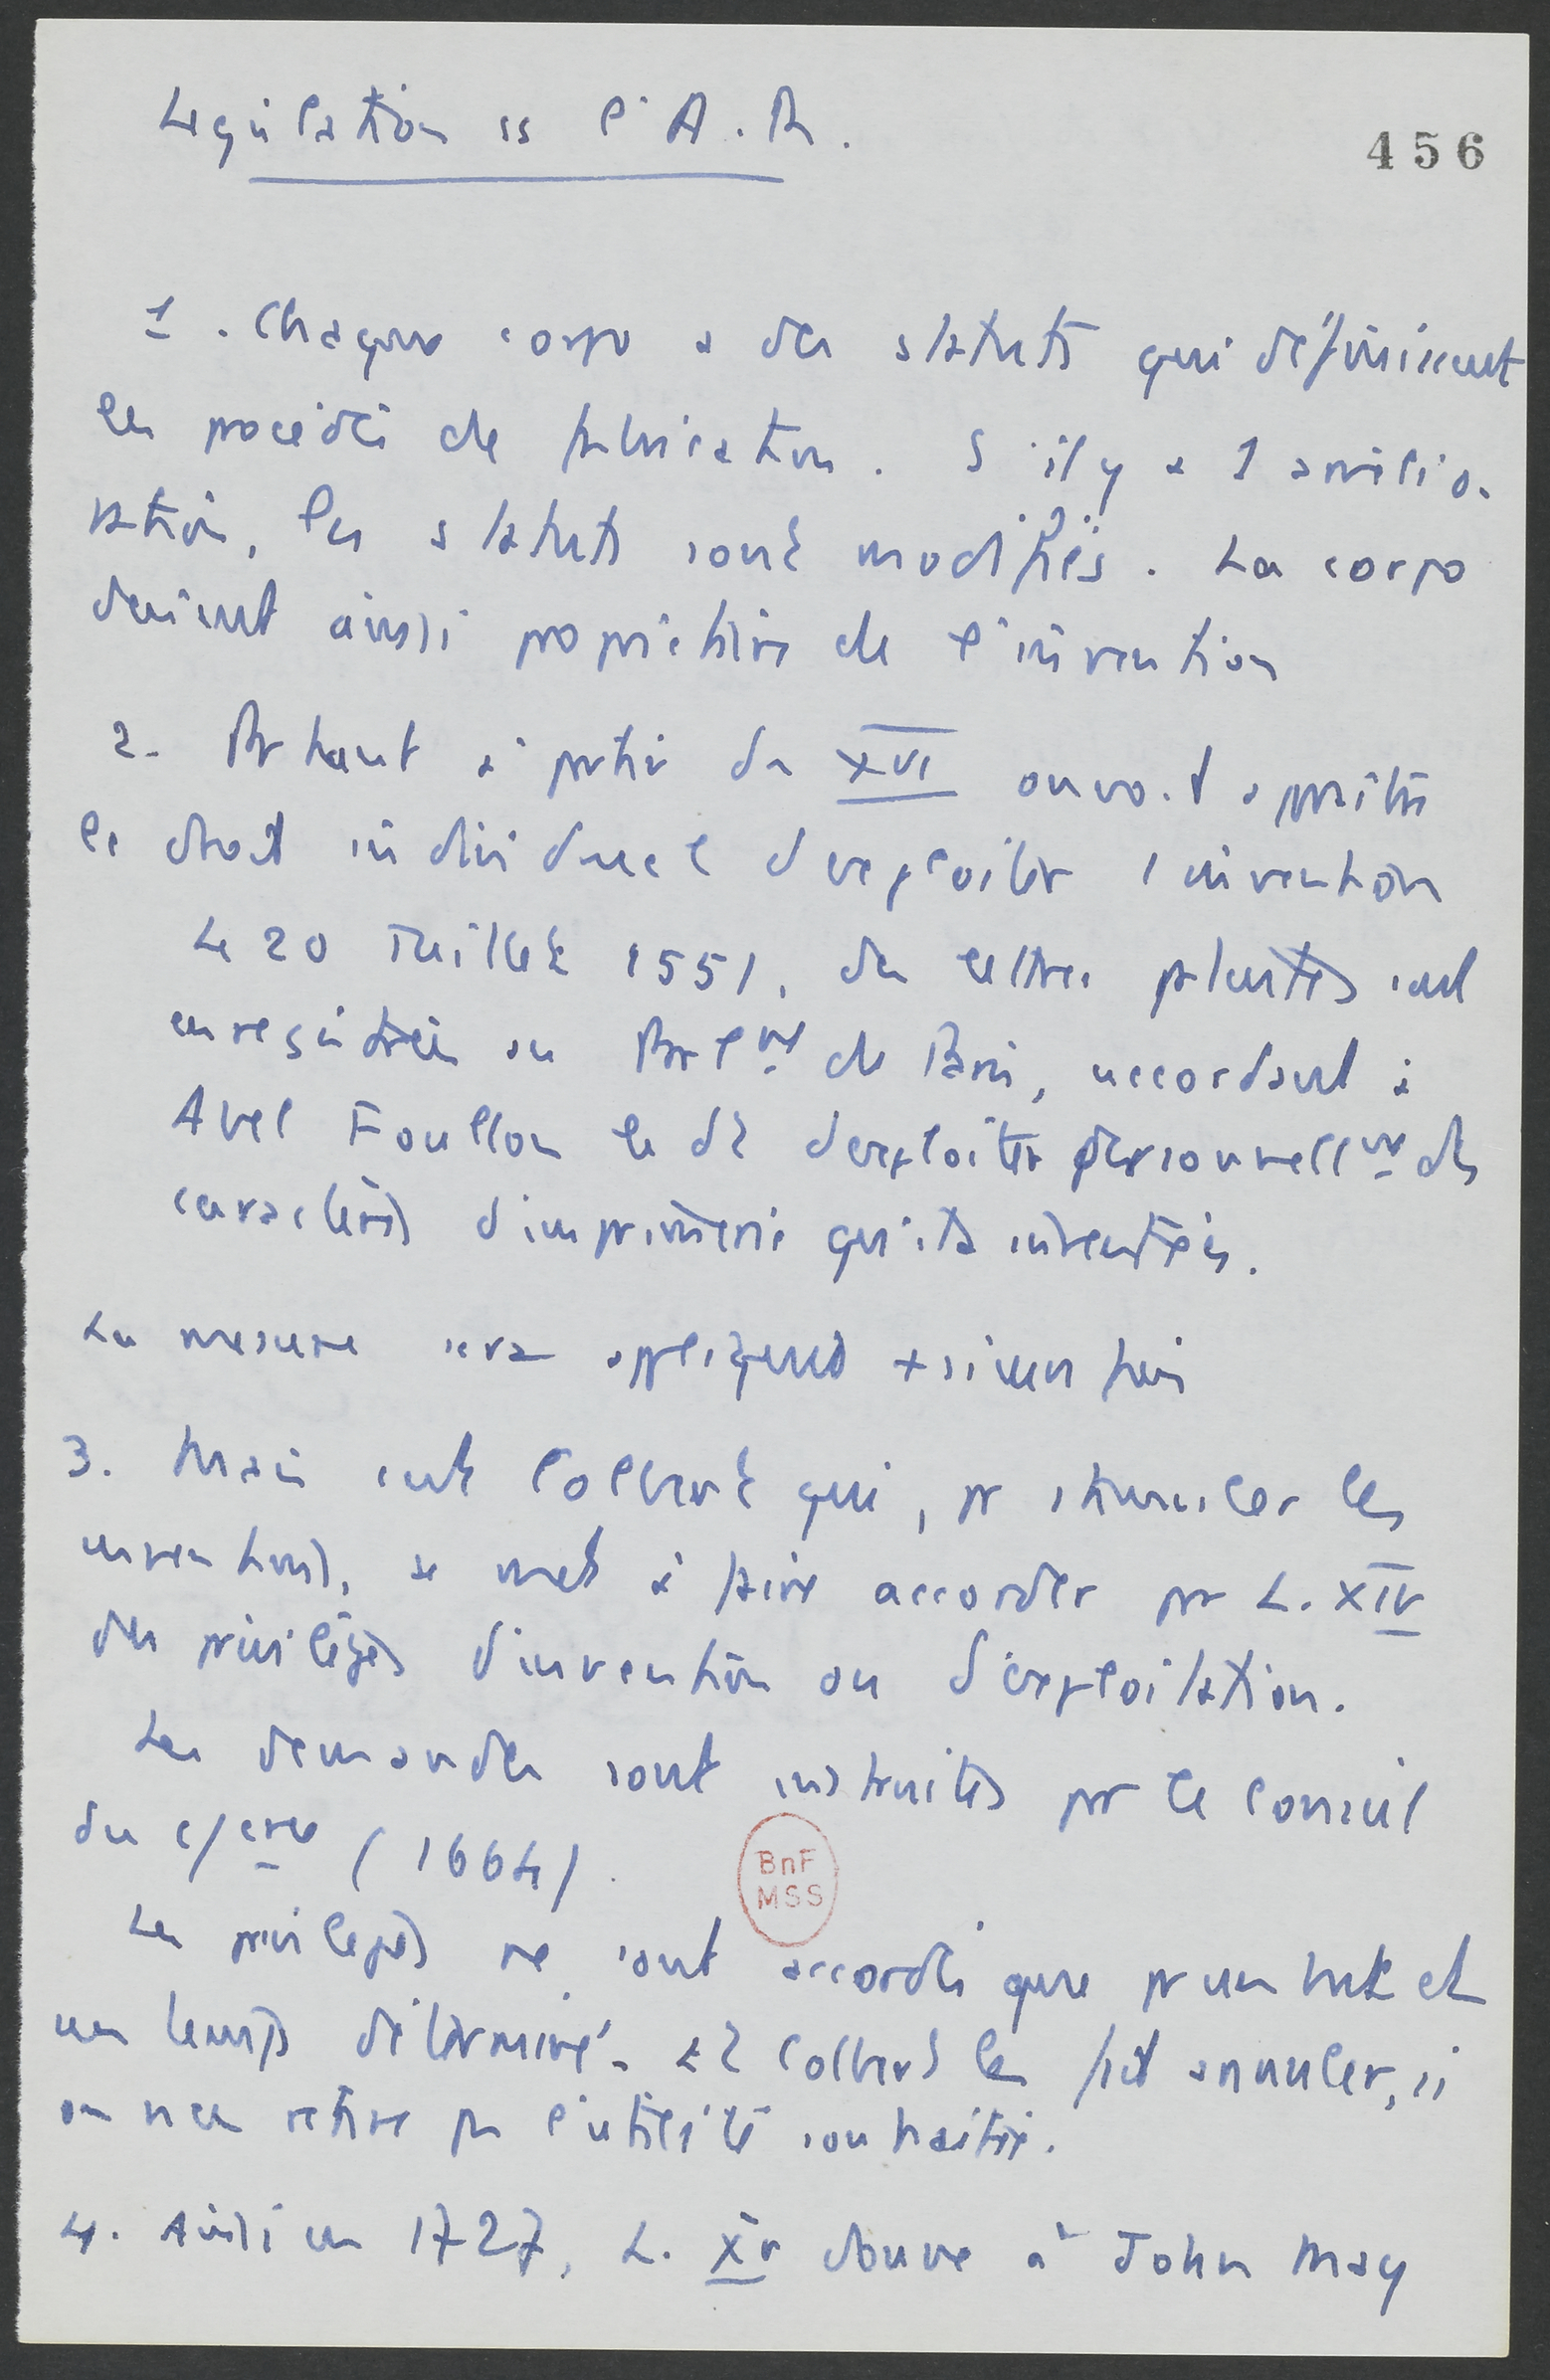 Législation ss l'A.R.
456
1. Chaque corpo a des statuts qui définissent
les procédés de fabrication. S'il y a 1 amélio-
ration, les statuts sont modifiés. La corpo
devient ainsi propriétaire de l'invention
2. Pourtant à partir du XVI on voit apparaître
le droit individuel d'exploiter l'invention
Le 20 Juillet 1551, des lettres patentes sont
enregistrées au Parlnt de Paris, accordant à
Abel Foullon le dt d'exploiter personnellnt des
caractères d'imprimerie qu'il a inventés.
La mesure sera appliquée +sieurs fois
3. Mais c'est Colbert qui, pr stimuler les
inventions, se met à faire accorder par L. XIV
des privilèges d'invention ou d'exploitation.
Les demandes sont instruites par le Conseil
du c/erce (1664).
Les privilèges ne sont accordés que pr un but et
un temps déterminé. Et Colbert les fait annuler, si
on n'en retire pas l'utilité souhaitée.
4. Ainsi en 1727, L. XV donne à John May
BnF
MSS